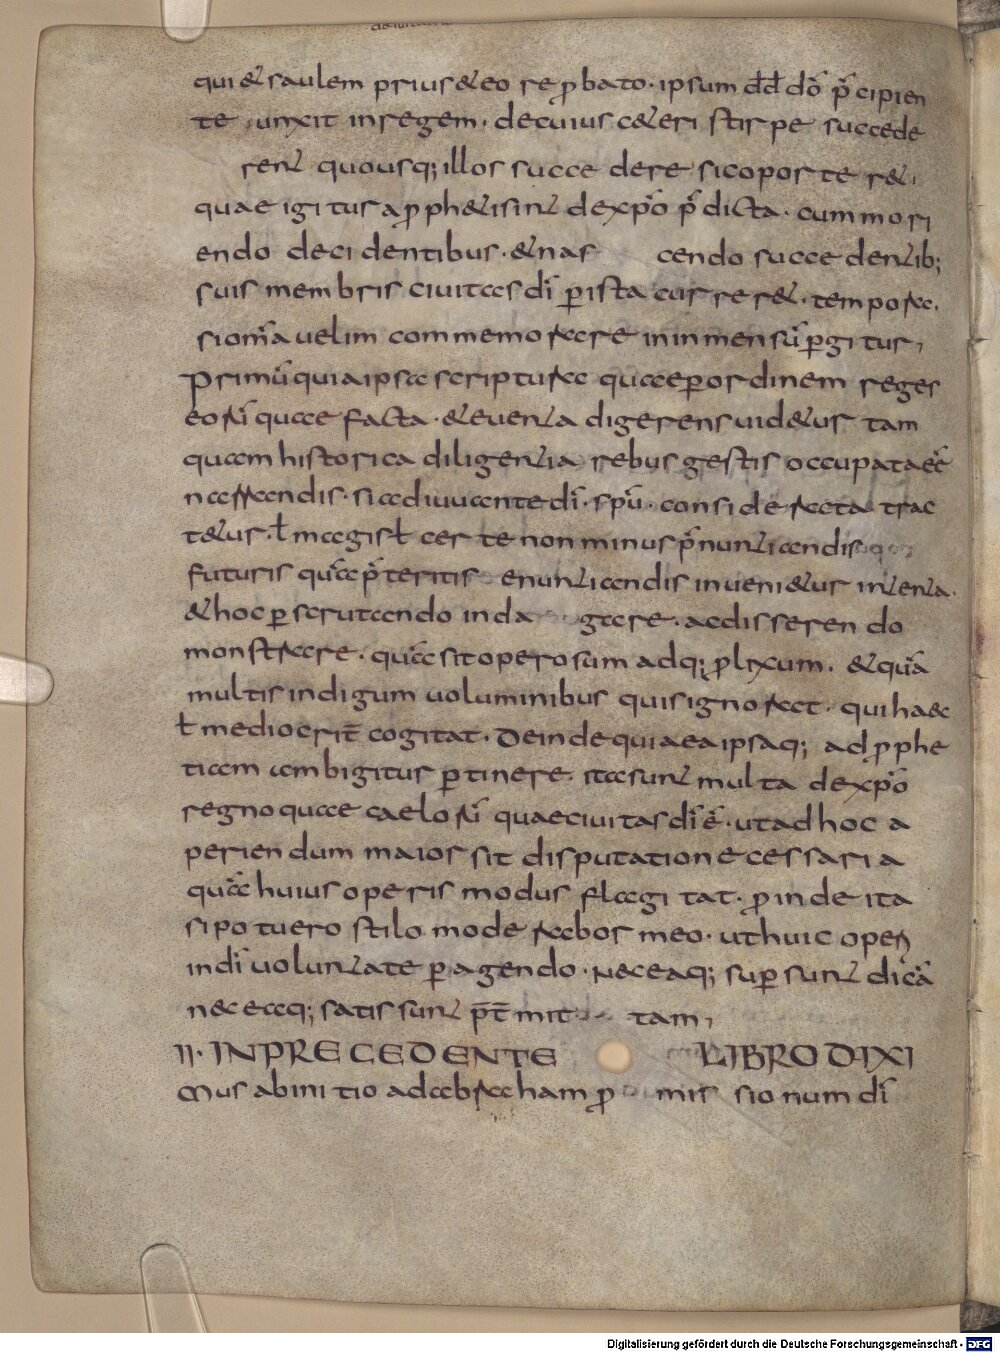 qui & saulem prius & eo re ꝓbato · ipsum dd̄ dō p̄cipien
te unxit in regem · de cuius cæteri stirpe succede
rent quousq; illos succedere sic oporteret,
quae igitur a ꝓphetis int de xp̄o p̄dicta · cum mori
endo decidentibus · & nascendo succedentib;
suis membris civitas dī ꝑ ista curreret · tempora ·
si om̄a velim commemorare in inmensū ꝑgitur,
Primū quia ipsa scriptura quae ꝑ ordinem reges
eorū quae facta · & eventa digerens videtur tam
quam historica diligentia rebus gestis occupata eē
narrandis · si adiuvante dī · spū · considerata trac
tetur · ł magis ł certe non minus p̄nuntiandis
futuris quā p̄teritis enuntiandis invenietur intenta ·
& hoc ꝑscrutando indagare · ac disserendo
monstrare · quā sit operosum adq; ꝓlixum · & quā
multis indigum voluminibus quis ignorat · qui haec
ł mediocrit̄ cogitat · Deinde quia ea ipsa q; ad ꝓphe
tiam ambigitur ꝑtinere · ita sunt multa de xp̄o
regno quae caelorū quae civitas dī ē · ut ad hoc a
periendum maior sit disputatio necessaria
quā huius operis modus flagitat · ꝓinde ita
si potuero stilo moderabor meo · ut huic operi
in dī voluntate ꝑagendo · nec ea q; suꝑsunt dicā
nec ea q; satis sunt p̄t̄mittam,
II · IN PRECEDENTE LIBRO DIXI
Mus ab initio ad abraham ꝓmissionum dī
Digitalisierung gefördert durch die Deutsche Forschungsgemeinschaft - DFG